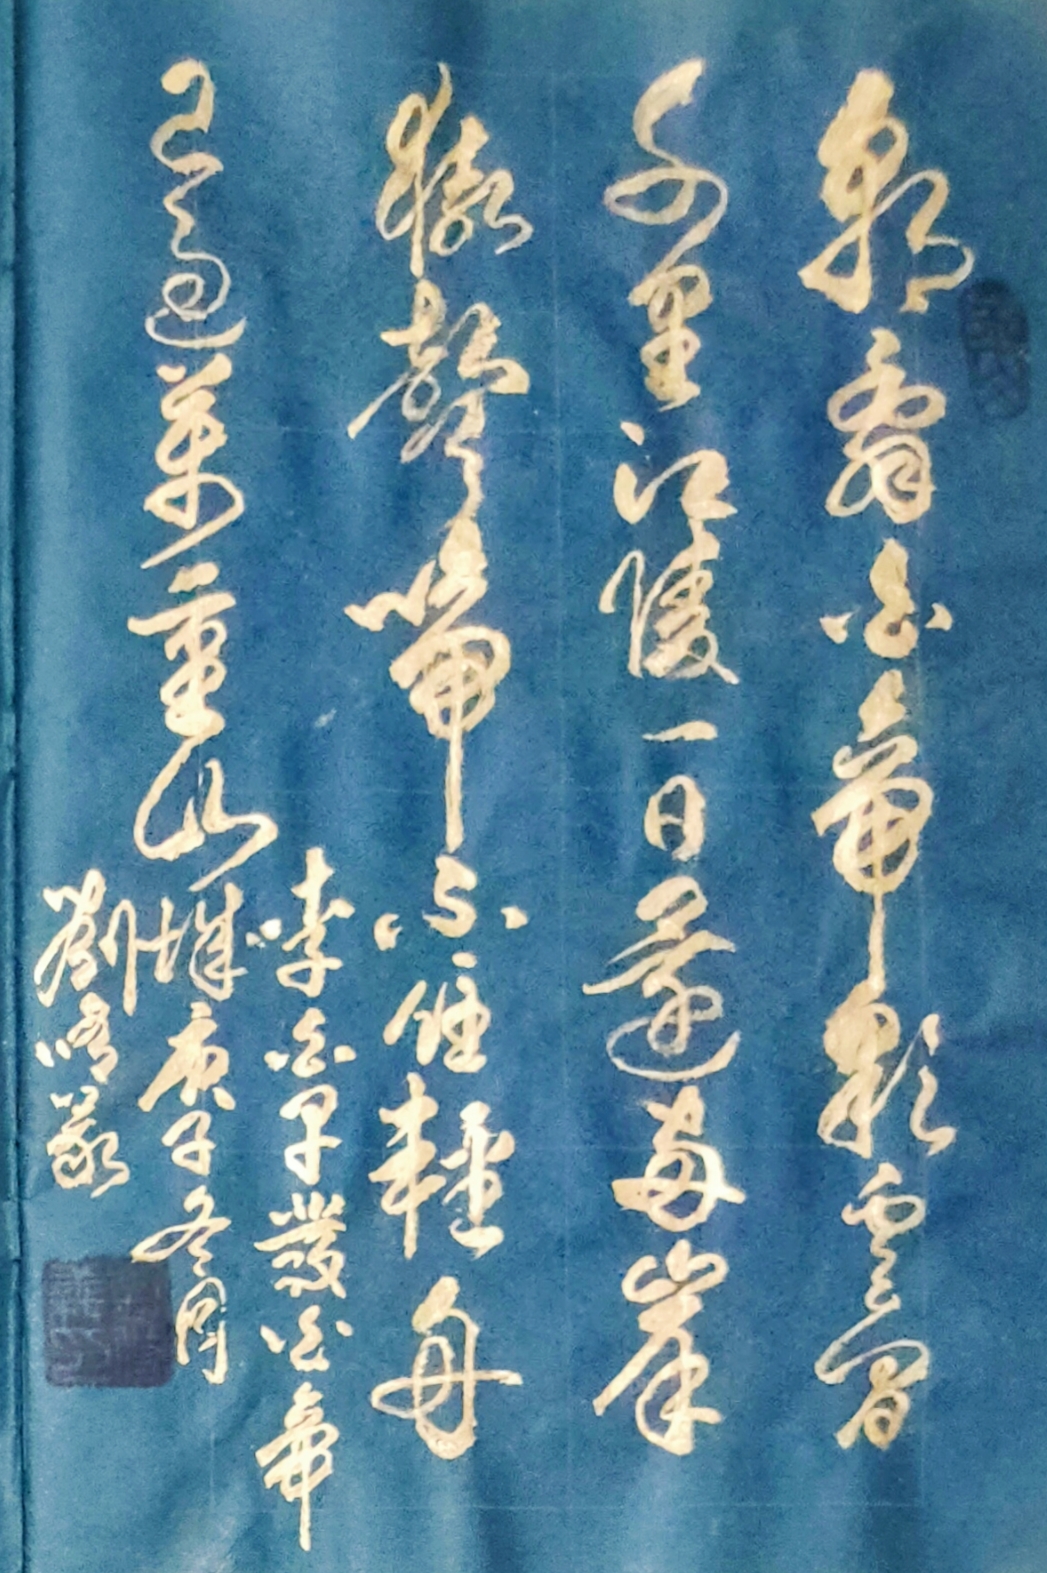 朝辭白帝彩雲間
千里江陵一日還兩岸
猿聲啼不住輕舟
已過萬重山
李白早發白帝
城庚子冬月
劉